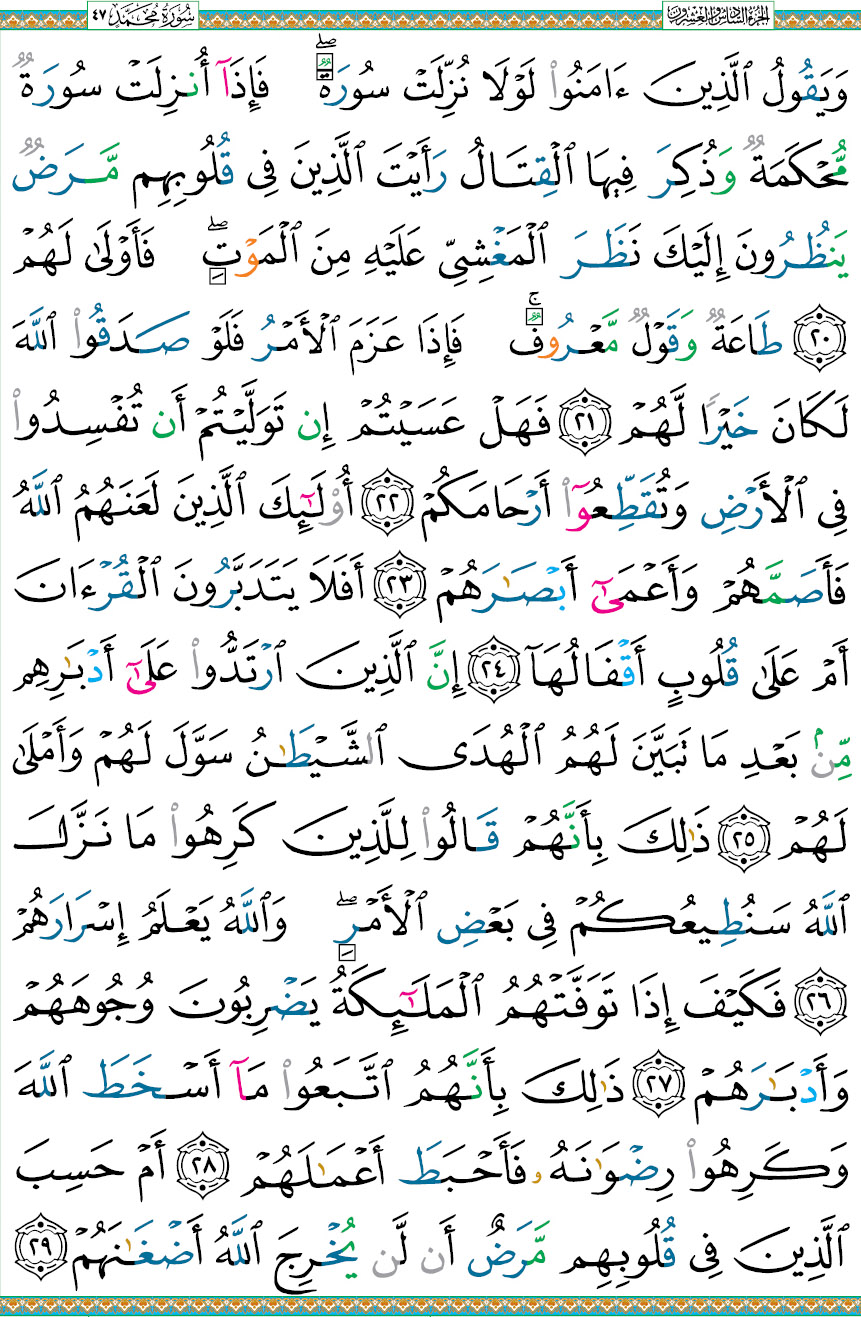 الجزء السادس والعشرون سورة محمد ٤٧
وَيَقُولُ ٱلَّذِينَ ءَامَنُوا۟ لَوْلَا نُزِّلَتْ سُورَةٌۖ فَإِذَآ أُنزِلَتْ سُورَةٌ
مُّحْكَمَةٌ وَذُكِرَ فِيهَا ٱلْقِتَالُ رَأَيْتَ ٱلَّذِينَ فِى قُلُوبِهِم مَّرَضٌ
يَنظُرُونَ إِلَيْكَ نَظَرَ ٱلْمَغْشِىِّ عَلَيْهِ مِنَ ٱلْمَوْتِۖ فَأَوْلَىٰ لَهُمْ
٢٠ طَاعَةٌ وَقَوْلٌ مَّعْرُوفٌۚ فَإِذَا عَزَمَ ٱلْأَمْرُ فَلَوْ صَدَقُوا۟ ٱللَّهَ
لَكَانَ خَيْرًا لَّهُمْ ٢١ فَهَلْ عَسَيْتُمْ إِن تَوَلَّيْتُمْ أَن تُفْسِدُوا۟
فِى ٱلْأَرْضِ وَتُقَطِّعُوٓا۟ أَرْحَامَكُمْ ٢٢ أُو۟لَٰٓئِكَ ٱلَّذِينَ لَعَنَهُمُ ٱللَّهُ
فَأَصَمَّهُمْ وَأَعْمَىٰٓ أَبْصَٰرَهُمْ ٢٣ أَفَلَا يَتَدَبَّرُونَ ٱلْقُرْءَانَ
أَمْ عَلَىٰ قُلُوبٍ أَقْفَالُهَآ ٢٤ إِنَّ ٱلَّذِينَ ٱرْتَدُّوا۟ عَلَىٰٓ أَدْبَٰرِهِم
مِّنۢ بَعْدِ مَا تَبَيَّنَ لَهُمُ ٱلْهُدَى ٱلشَّيْطَٰنُ سَوَّلَ لَهُمْ وَأَمْلَىٰ
لَهُمْ ٢٥ ذَٰلِكَ بِأَنَّهُمْ قَالُوا۟ لِلَّذِينَ كَرِهُوا۟ مَا نَزَّلَ
ٱللَّهُ سَنُطِيعُكُمْ فِى بَعْضِ ٱلْأَمْرِۖ وَٱللَّهُ يَعْلَمُ إِسْرَارَهُمْ
٢٦ فَكَيْفَ إِذَا تَوَفَّتْهُمُ ٱلْمَلَٰٓئِكَةُ يَضْرِبُونَ وُجُوهَهُمْ
وَأَدْبَٰرَهُمْ ٢٧ ذَٰلِكَ بِأَنَّهُمُ ٱتَّبَعُوا۟ مَآ أَسْخَطَ ٱللَّهَ
وَكَرِهُوا۟ رِضْوَٰنَهُۥ فَأَحْبَطَ أَعْمَٰلَهُمْ ٢٨ أَمْ حَسِبَ
ٱلَّذِينَ فِى قُلُوبِهِم مَّرَضٌ أَن لَّن يُخْرِجَ ٱللَّهُ أَضْغَٰنَهُمْ ٢٩